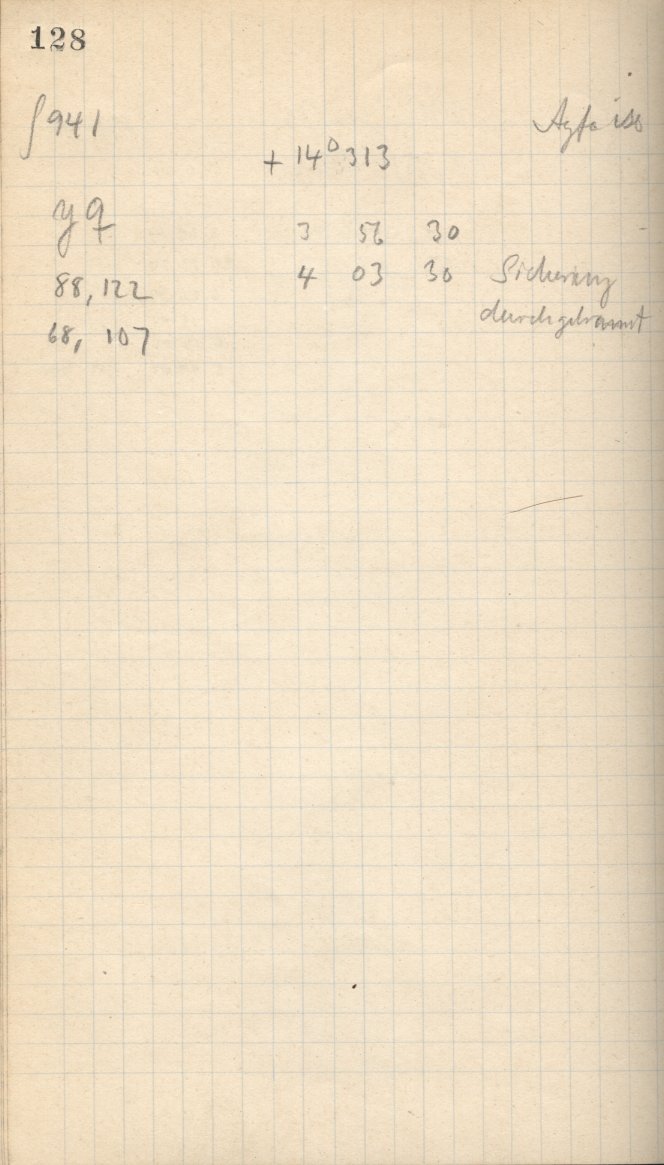 128
∫941
Agfa iso
+ 14° 313
y q
3 56 30
88, 122
4 03 30 Sicherung
durchgebrannt
68, 107